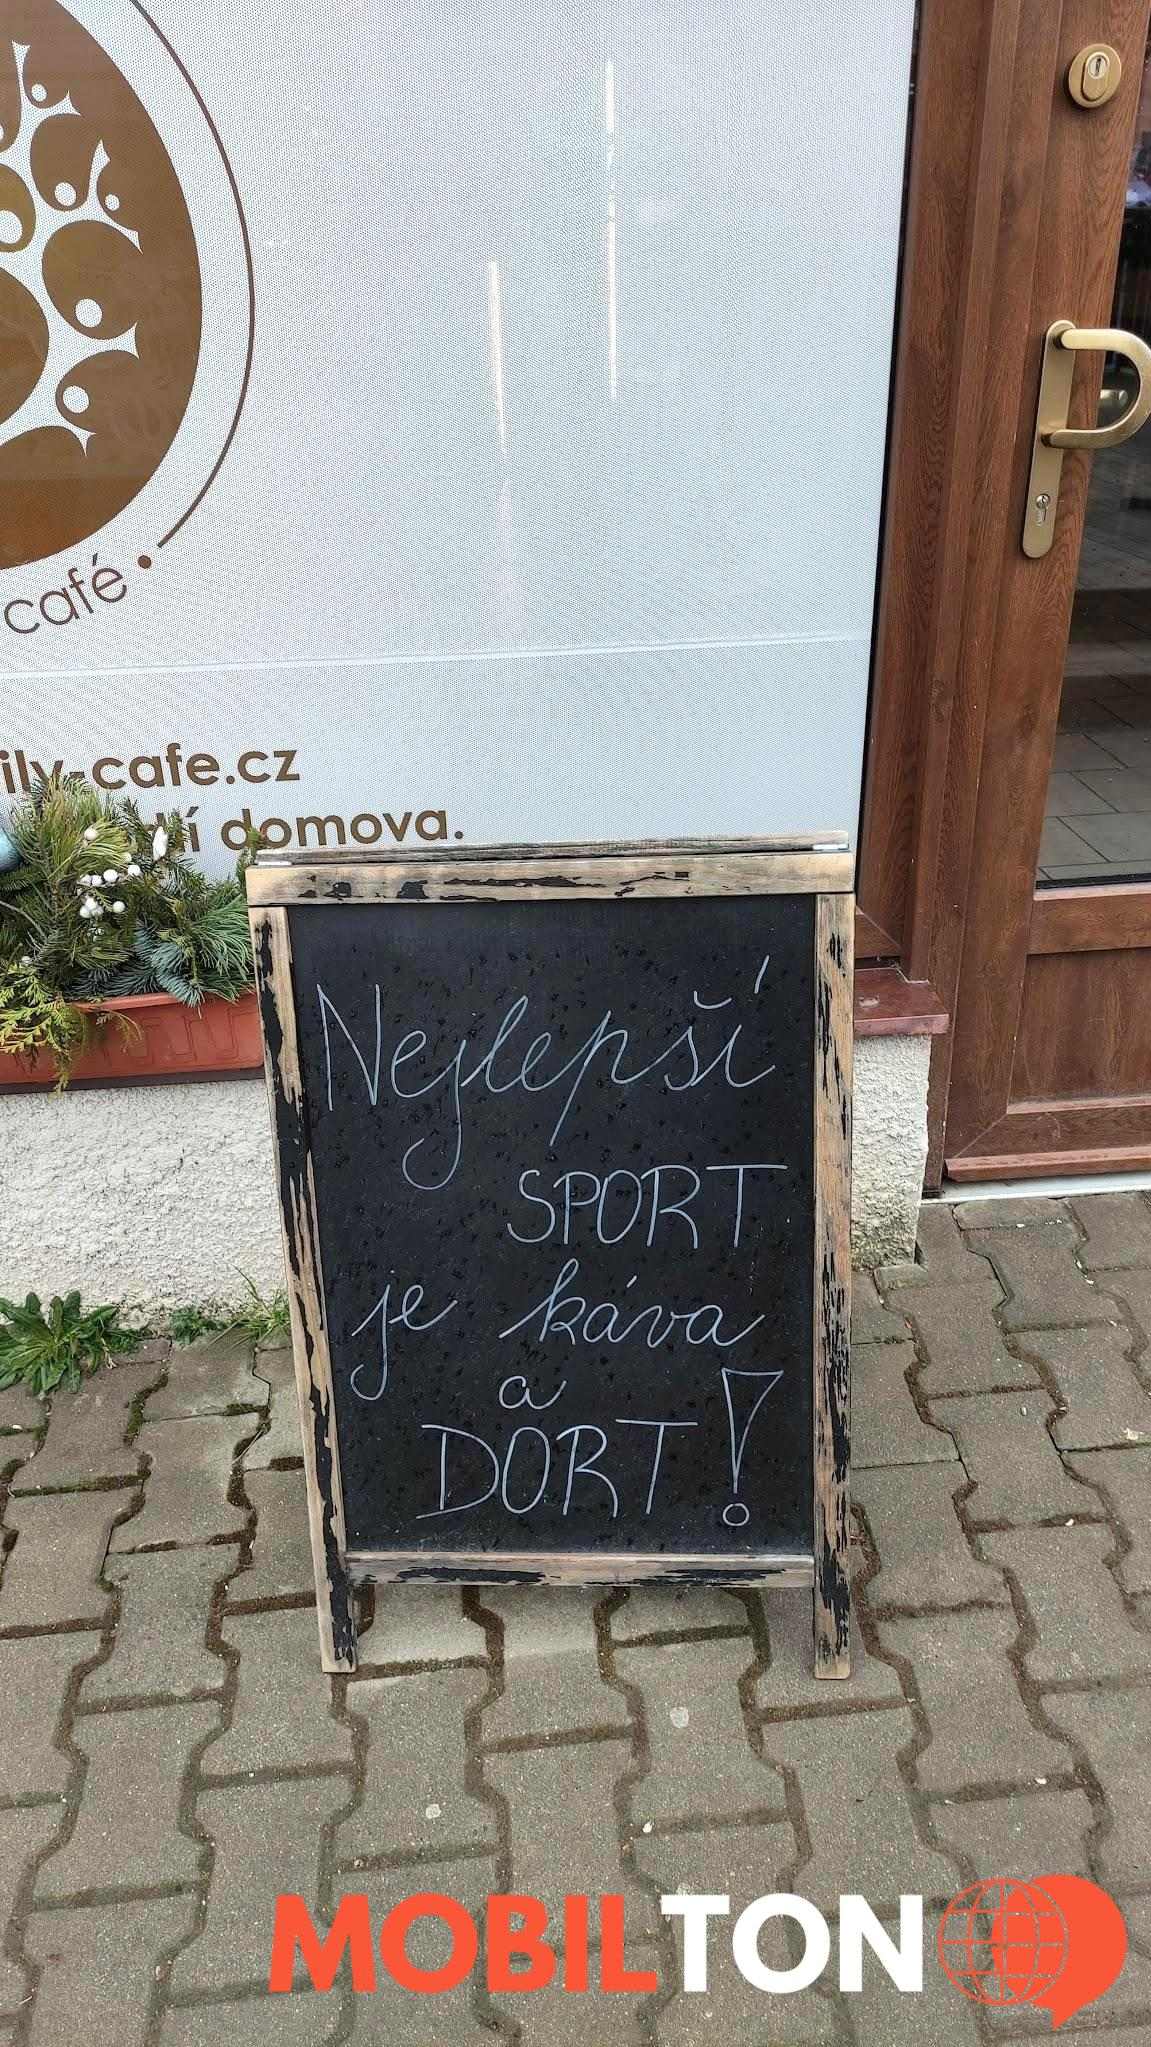 café
ily-cafe.cz
domova.
Nejlepší
SPORT
je káva
a
DORT!
MOBILTON